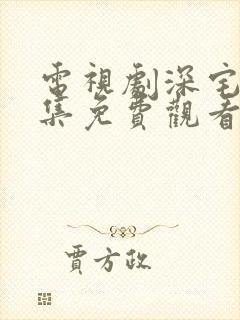 電視劇深宅
集免費觀看
賈方政